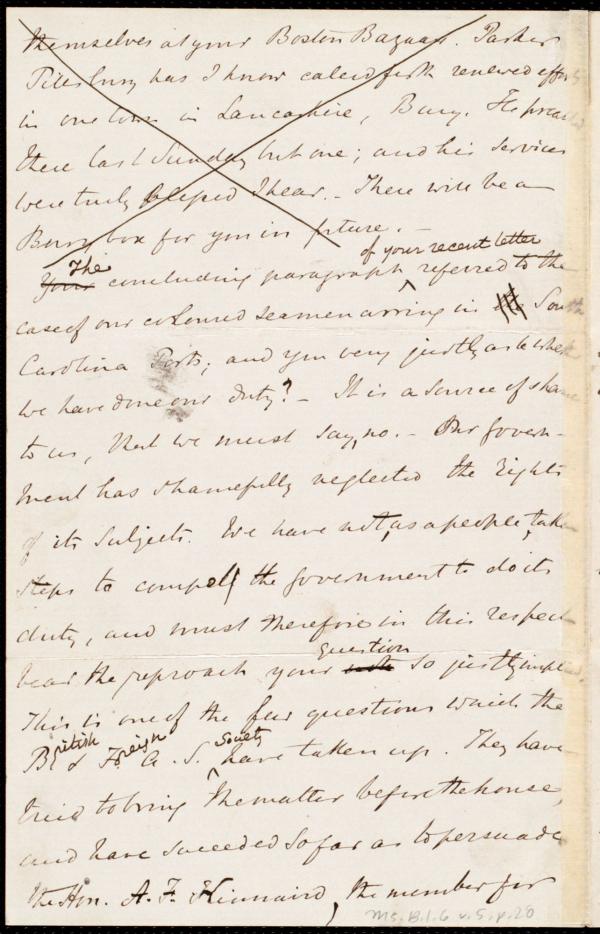 themselves at your Boston Bazaar. Parker
Pillsbury has I know called forth renewed efforts
in one town in Lancashire, Bury. He preached
there last Sunday but one; and his services
were truly blessed I hear. - There will be a
Bury box for you in future. -
of your recent letter
The
Your concluding paragraph ^ referred to the
case of our coloured seamen arriving in the South
Carolina Ports; and you very justly ask whether
we have done our duty? - It is a source of shame
to us, that we must say, no. - Our Govern-
ment has shamefully neglected the rights
of its subjects. We have not, as a people, taken
steps to compel the government to do its
duty, and must therefore in this respect
question
bear the reproach your so justly implies.
This is one of the few questions which the
British & Foreign A. S. Society have taken up. They have
tried to bring the matter before the house,
and have succeeded so far as to persuade
the Hon. A. F. Kinnaird, the member for
Ms. B.1.6 v.5, p.20